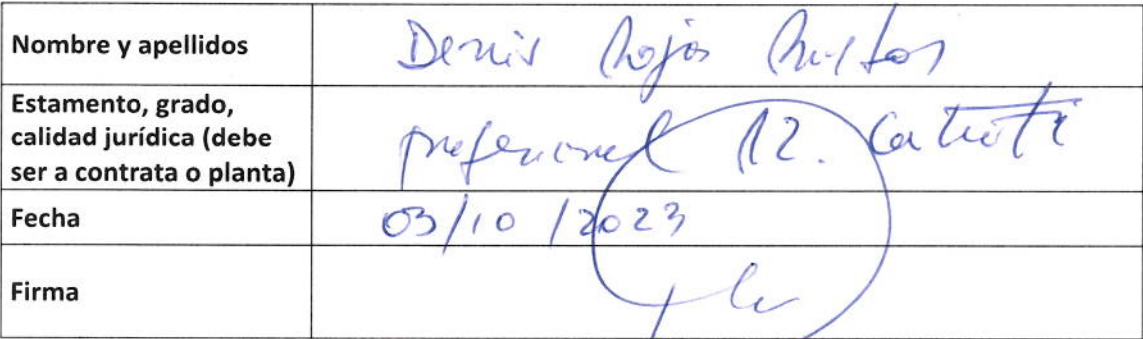 Nombre y apellidos
Denis Rojas Bustos
Estamento, grado,
calidad jurídica (debe
ser a contrata o planta)
profesional 12. Contrata
Fecha
03/10/2023
Firma